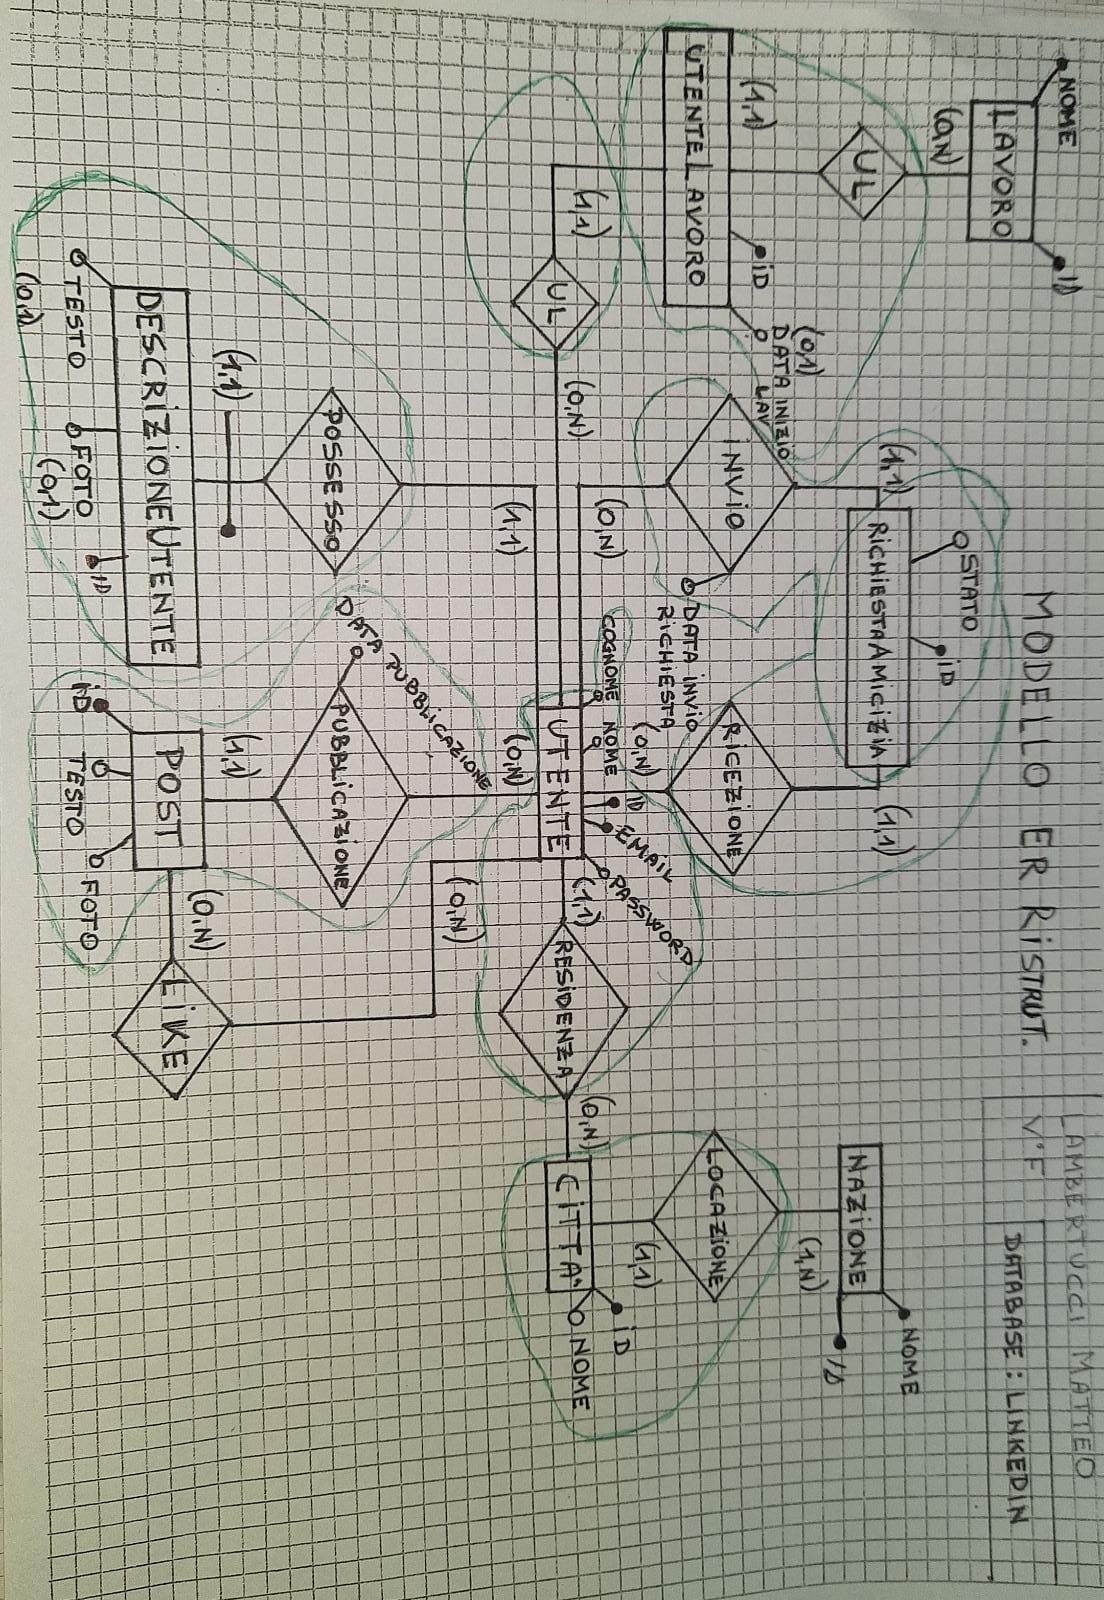 LAMBERTUCCI MATTEO
MODELLO ER RiSTRUT.
V°F
DATABASE: LINKEDIN
NOME
ID
LAVORO
(0,N)
UL
(1,1)
iD
(0,1)
DATA INIZIO
LAV
UTENTELAVORO
(1,1)
UL
(0,N)
STATO
iD
(1,1)
RiCHiESTAAMiCiZiA
(1,1)
iNViO
DATA iNViO
RiCHiESTA
(0,N)
RiCEZiONE
(0,N)
NOME
NAZiONE
ID
(1,N)
LOCAZiONE
(1,1)
iD
CiTTA'
NOME
(0,N)
RESiDENZA
(1,1)
COGNOME
NOME
ID
EMAIL
PASSWORD
UTENTE
(1,1)
(0,N)
(0,N)
POSSESSO
(1,1)
DESCRiZiONEUTENTE
TESTO
(0,1)
FOTO
(0,1)
ID
DATA PUBBLiCAZiONE
PUBBLiCAZiONE
(1,1)
POST
(0,N)
LiKE
iD
TESTO
FOTO